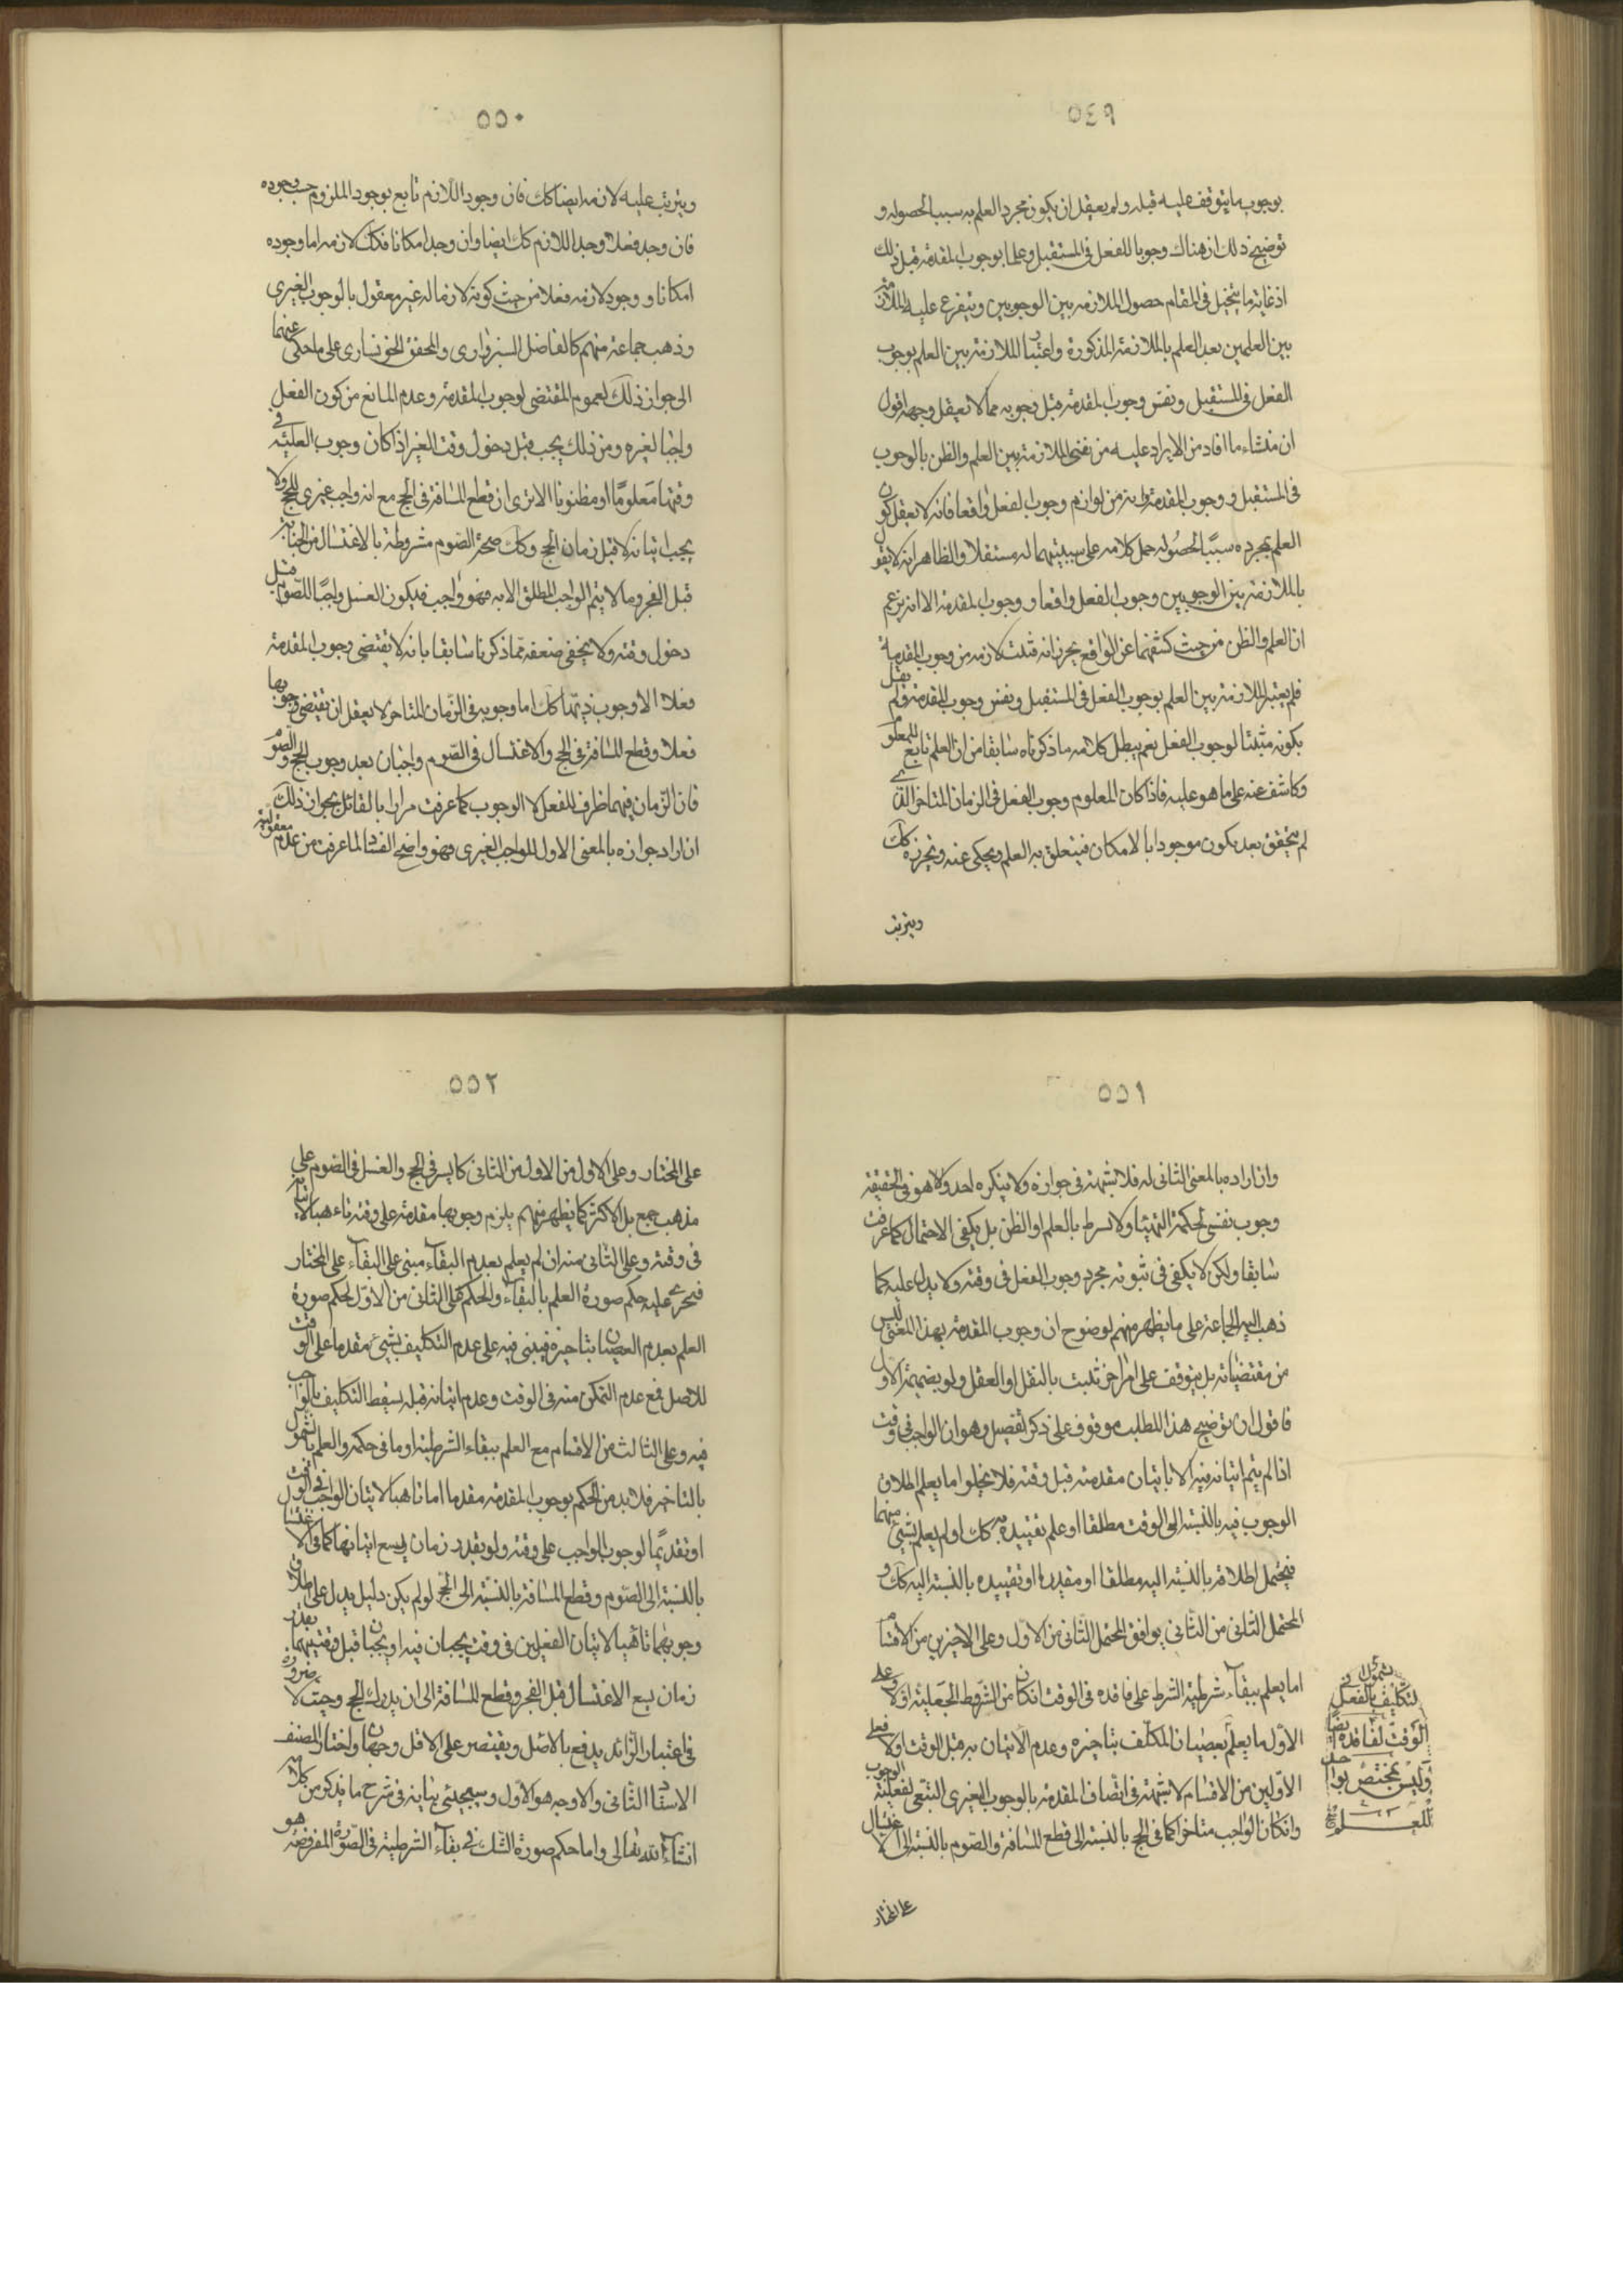 ٥٤٩
بوجوب ما يتوقف عليه قبله ولم يعقل ان يكون مجرد العلم به سببا لحصوله و
توضيح ذلك ان هناك وجوبا للفعل فى المستقبل وعلما بوجوب المقدمة قبل ذلك
اذ غاية ما يتخيل فى المقام حصول الملازمه بين الوجوبين ويتفرع عليه الملازمة
بين العلمين بعد العلم بالملازمة المذكورة واعتبار الملازمة بين العلم بوجوب
الفعل فى المستقبل ونفس وجوب المقدمة قبل وجوبه مما لا يعقل وجهه اقول
ان منشاء ما افاد من الايراد عليه من نفى الملازمة بين العلم والظن بالوجوب
فى المستقبل ووجوب المقدمة وانه من لوازم وجوب الفعل واقعا فانه لا يعقل كون
العلم بمجرده سببًا لحصُوله حمل كلامه على سببيتهما له مستقلا والظاهر انه لا يقول
بالملازمة بين الوجوبين وجوب الفعل واقعا ووجوب المقدمة الا انه يزعم
ان العلم والظن من حيث كشفهما عن الواقع يحرز انه فثبت لازمه من وجوب المقدمة
فلم يعتبر الملازمة بين العلم بوجوب الفعل فى المستقبل ونفس وجوب المقدمة ولم يقل
بكونه مثبتا لوجوب الفعل نعم يبطل كلامه ما ذكرناه سابقا من ان العلم تابع للمعلوم
وكاشف عنه على ما هو عليه فاذا كان المعلوم وجوب الفعل فى الزمان المتاخر الذى
لم يتحقق بعد يكون موجودا بالامكان فيتعلق به العلم ويحكى عنه ويحرزه كك
ويترتب
٥٥٠
ويترتب عليه لازمه ايضا كك فان وجود اللازم تابع بوجود الملزوم حسب وجوده
فان وجد فعلا وجد اللازم كك ايضا وان وجد امكانا فكك لازمه اما وجوده
امكانا ووجود لازمه فعلا من حيث كونه لازما له غير معقول بالوجوب الغيرى
وذهب جماعة منهم كالفاضل السبزوارى والمحقق الخونسارى على ما حكى عنهما
الى جواز ذلك لعموم المقتضى لوجوب المقدمة وعدم المانع من كون الفعل
واجبا لغيره ومن ذلك يجب قبل دخول وقت الغير اذا كان وجوب الغاية فى
وقتها معلومًا او مظنونا الا ترى ان قطع المسافة فى الحج مع انه واجب غيرى للحج ولا
يجب اتيانه لا قبل زمان الحج وكك صحة الصّوم مشروطة بالاغتسال من الجنابة
قبل الفجر وما لا يتم الواجب المطلق الا به فهو واجب فيكون الغسل واجبًا للصوم قبل
دخول وقته ولا يخفى ضعفه مما ذكرنا سابقا بانه لا يقتضى وجوب المقدمة
فعلا الا وجوب ذيها كك اما وجوبه فى الزّمان المتاخر لا يعقل ان يقتضى وجوبها
فعلا وقطع المسافة فى الحج والاغتسال فى الصّوم واجبان بعد وجوب الحج والصّوم
فان الزّمان فيهما ظرف للفعل لا الوجوب كما عرفت مرارا بالقائل بجواز ذلك
ان اراد جوازه بالمعنى الاول للواجب الغيرى فهو واضح الفساد لما عرفت من عدم معقوليته
٥٥١
وان اراده بالمعنى الثانى له فلا شبهة فى جوازه ولا ينكره احد ولا هو فى الحقيقة
وجوب نفسى لحكمة التهيئا ولا يشرط بالعلم او الظن بل يكفى الاحتمال كما عرفت
سابقا ولكن لا يكفى فى ثبوته مجرد وجوب الفعل فى وقته ولا يدل عليه كما
ذهب اليه الجماعة على ما يظهر منهم لوضوح ان وجوب المقدمة بهذا المعنى ليس
من مقتضياته بل يتوقف على امر اخر ثبت بالنقل او العقل ولو بضميمة الاول
فاقول ان توضيح هذا المطلب موقوف على ذكر تفصيل وهو ان الواجب فى وقت
اذا لم يتم اتيانه فيه الا باتيان مقدمته قبل وقته فلا يخلوا ما يعلم اطلاق
الوجوب فيه بالنسبة الى الوقت مطلقا او علم تقييده به كك او لم يعلم بشيئ منهما
فيحتمل اطلاقه بالنسبة اليه مطلقا او مقدرا او تقييده بالنسبة اليه كك و
المحتمل الثانى من الثانى يوافق المحتمل الثانى من الاول وعلى الاخيرين من الاقسام
اما يعلم ببقاء شرطية الشرط على فاقده فى الوقت ان كان من الشروط الجعلية او لا وعلى
الاول ما يعلم بعصيان المكلف بتاخيره وعدم الاتيان به قبل الوقت اولا فعلى
الاولين من الاقسام لا شبهة فى اتصاف المقدمة بالوجوب الغيرى التبعى لفعلية الوجوب
وان كان الواجب متاخرا كما فى الحج بالنسبة الى قطع المسافة والصّوم بالنسبة الى الاغتسال
بشمول
التكليف بالفعل فى
الوقت لفاقده ايضا
وليس بمختص بواجد
للعلم
على المختار
٥٥٢
على المختار وعلى الاول من الاول من الثانى كالسير فى الحج والغسل فى الصوم على
مذهب جمع بل الاكثر كما يظهر منهم يلزم وجوبها مقدمة على وقته تاهبا لاتيانه
فى وقته وعلى الثانى منه ان لم يعلم بعدم البقاء مبنى على البقاء على المختار
فيجرى عليه حكم صورة العلم بالبقاء والحكم على الثانى من الاول لحكم صورة
العلم بعدم العصيان بتاخيره فيبنى فيه على عدم التكليف بشيئ مقدما على الوقت
للاصل فمع عدم التمكن منه فى الوقت وعدم اتيانه قبله يسقط التكليف بالواجب
فيه وعلى الثالث من الاقسام مع العلم ببقاء الشرطية او ما فى حكمه والعلم بالشمول
بالتاخير فلابد من الحكم بوجوب المقدمة مقدما اما تاهبا لاتيان الواجب فى الوقت
او تقديمًا لوجوب الواجب على وقته ولو بقدر زمان يسع اتيانها كما فى الاغتسال
بالنسبة الى الصّوم وقطع المسافة بالنسبة الى الحج لو لم يكن دليل يدل على اطلاق
وجوبهما تاهبا لاتيان الفعلين فى وقت يجبان فيه او يجبان قبل وقتيهما بقدر
زمان يسع الاغتسال قبل الفجر وقطع المسافة الى ان يدرك الحج وحيث لا ضرورة
فى اعتبار الزّائد يدفع بالاصل ويقتصر على الاقل وجهان واختار المصنف
الاستاد الثانى والاوجه هو الاول وسيجيئى بيانه فى شرح ما يذكر من كلامه
انشاء الله تعالى واما حكم صورة الشك فى بقاء الشرطية فى الصّورة المفروضة هو